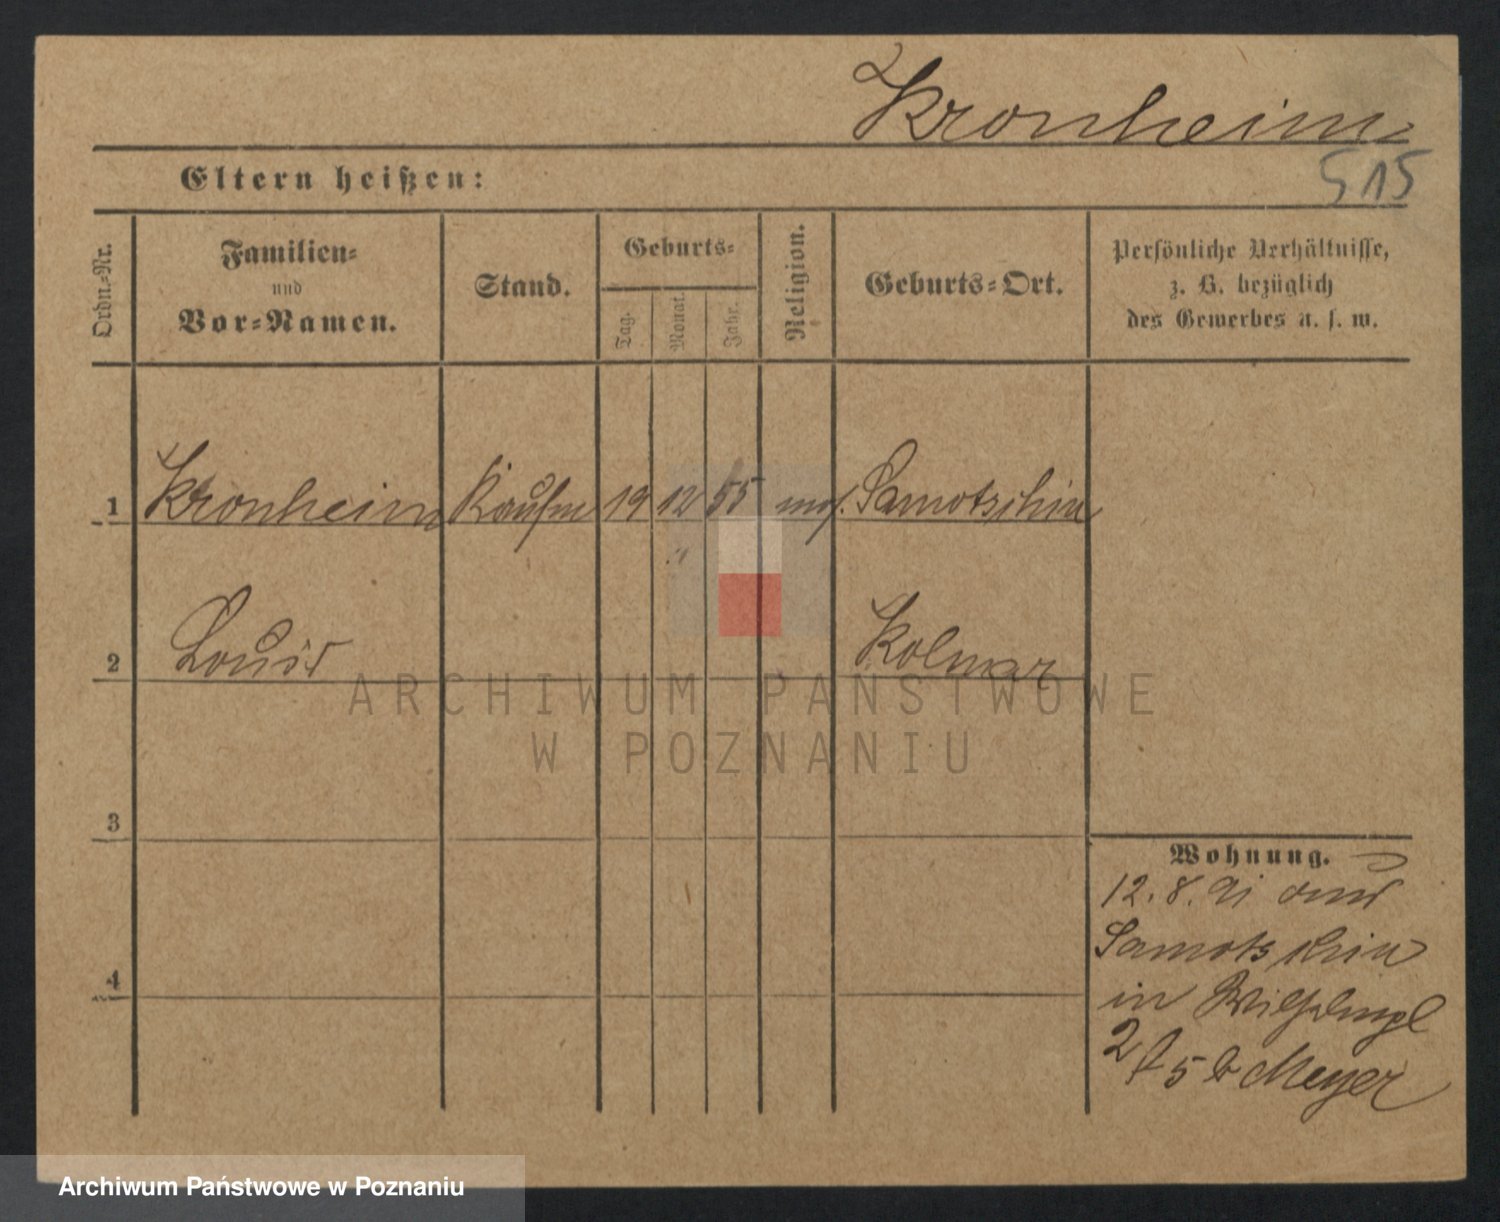 Kronheim
515
Eltern heißen:
Ordn.=Nr.
Familien=
und
Vor=Namen.
Stand.
Geburts=
Tag.
Monat.
Jahr.
Religion.
Geburts=Ort.
Persönliche Verhältnisse,
z. B. bezüglich
des Gewerbes u. s. w.
1 Kronheim Kaufm 19 12 55 mos. Samotschin
2 Louis Kolmar
3
4
Wohnung.
12. 8. 91 aus
Samotschin
in Wilhelmpl
2 5 b Meyer
ARCHIWUM PAŃSTWOWE
W POZNANIU
Archiwum Państwowe w Poznaniu